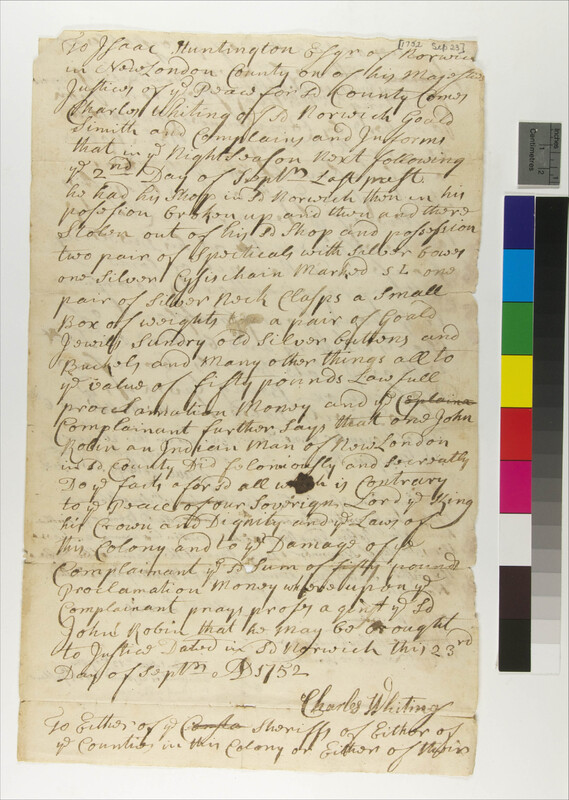 [1752 Sep 23]
To Isaac Huntington Esqr of Norwich
in New London County on of his Majesties
Justices of ye Peace for sd County Comes
Charles Whiting of sd Norwich Goald
Simith and Complains and Informs
that in ye Night Season Next following
ye 2nd Day of Septm Last past
he had his Shop in sd Norwich then in his
posesion broken up and then and there
Stolen out of his sd Shop and posession
two pair of Specticals with Silver bowes
one Silver Chain Marked SL one
pair of Silver Neck Clasps a Small
Box of weights a pair of Goald
Jewills Sundry old Silver buttens and
Buckels and Many other things all to
ye value of fifty pounds Lawfull
proclamation Money and ye
Complainant further Says that one John
Robin an Indian Man of New London
in sd County Did feloniously and Secreatly
Do ye fact afors'd all which is Contrary
to ye Peace of our Soverign Lord ye King
his Crown and Dignity and ye Laws of
this Colony and to ye Damage of ye
Complainant ye sd Sum of fifty pounds
Proclamation Money whereupon ye
Complainant prays proses aginst ye sd
John Robin that he May be brought
to Justice Dated in sd Norwich this 23rd
Day of Septm AD 1752
Charles Whiting
To Either of ye Consta Sheriffs of Either of
ye Counties in this Colony or Either of their
Inches
Centimetres